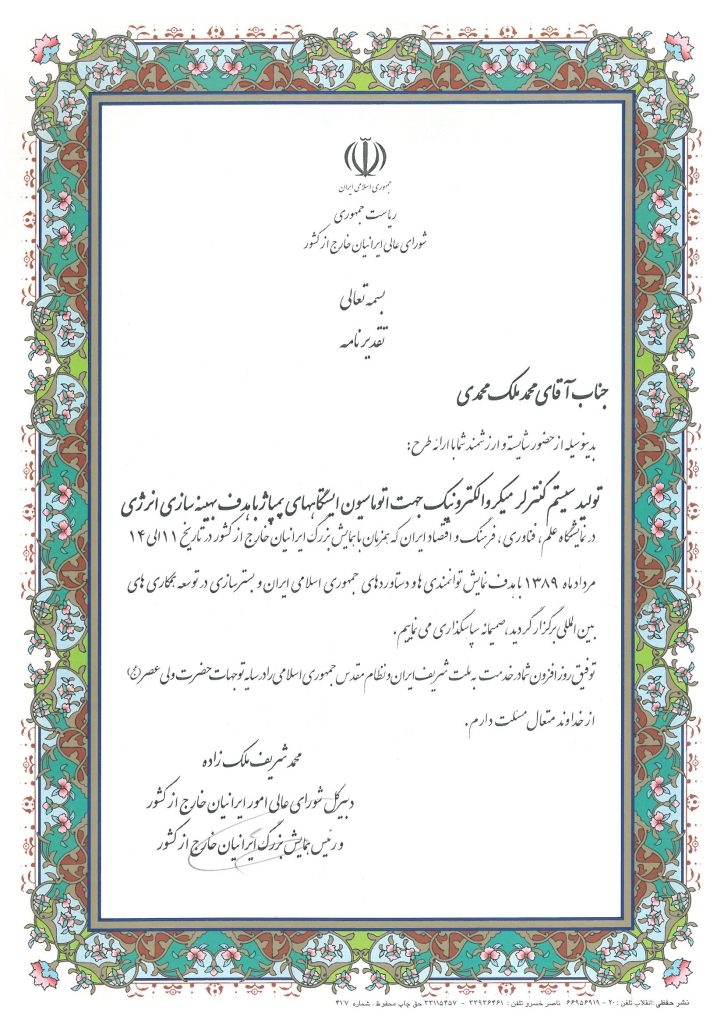 جمهوری اسلامی ایران
ریاست جمهوری
شورای عالی ایرانیان خارج از کشور
بسمه تعالی
تقدیرنامه
جناب آقای محمد ملک محمدی
بدینوسیله از حضور شایسته و ارزشمند شما با ارائه طرح :
تولید سیستم کنترلر میکروالکترونیک جهت اتوماسیون ایستگاههای پمپاژ با هدف بهینه سازی انرژی
در نمایشگاه علم، فناوری، فرهنگ و اقتصاد ایران که همزمان با همایش بزرگ ایرانیان خارج از کشور در تاریخ ۱۱ الی ۱۴
مرداد ماه ۱۳۸۹ با هدف نمایش توانمندی ها و دستاوردهای جمهوری اسلامی ایران و بسترسازی در توسعه همکاری های
بین المللی برگزار گردید، صمیمانه سپاسگذاری می نماییم.
توفیق روز افزون شما در خدمت به ملت شریف ایران و نظام مقدس جمهوری اسلامی را در سایه توجهات حضرت ولی عصر (عج)
از خداوند متعال مسئلت دارم.
محمد شریف ملک زاده
دبیر کل شورای عالی امور ایرانیان خارج از کشور
و رئیس همایش بزرگ ایرانیان خارج از کشور
نشر حفظی : انقلاب تلفن : ۲۰ - ۶۶۹۵۶۹۱۹ ناصر خسرو تلفن : ۳۳۹۳۶۴۶۱ - ۳۳۱۱۵۴۵۷ حق چاپ محفوظ . شماره ۴۱۷